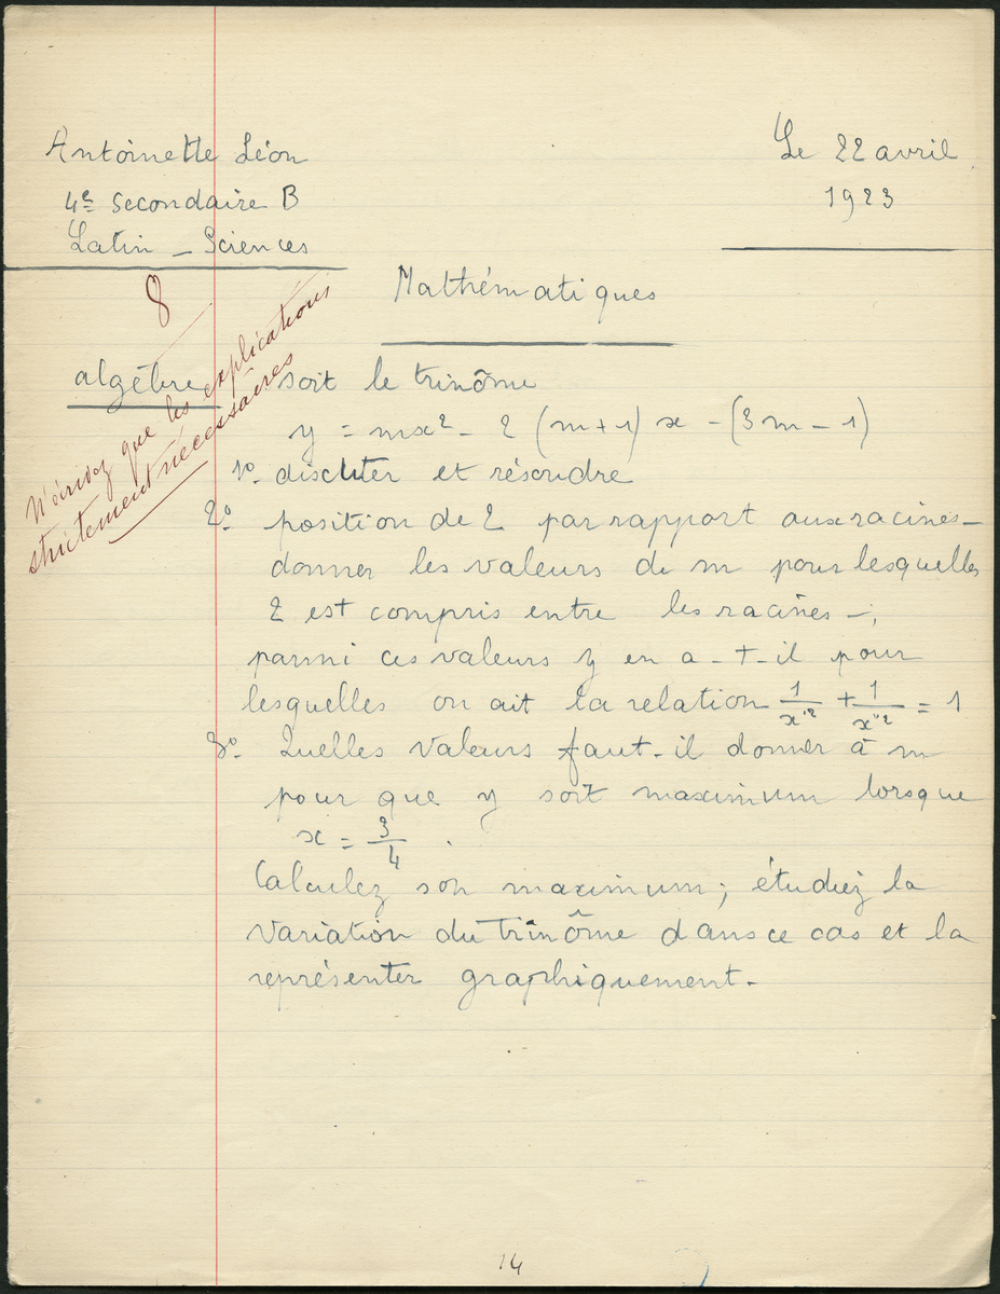 Antoinette Léon
Le 22 avril
4e secondaire B
1923
Latin - Sciences
8
Mathématiques
N'écrivez que les explications
strictement nécessaires
algèbre soit le trinôme
y = mx² - 2 (m+1) x - (3m - 1)
1º. discuter et résoudre
2º. position de 2 par rapport aux racines -
donner les valeurs de m pour lesquelles
2 est compris entre les racines -;
parmi ces valeurs y en a-t-il pour
lesquelles on ait la relation 1/x'² + 1/x"² = 1
3º. Quelles valeurs faut-il donner à m
pour que y soit maximum lorsque
x = 3/4 .
Calculez son maximum; étudiez la
variation du trinôme dans ce cas et la
représenter graphiquement.
14